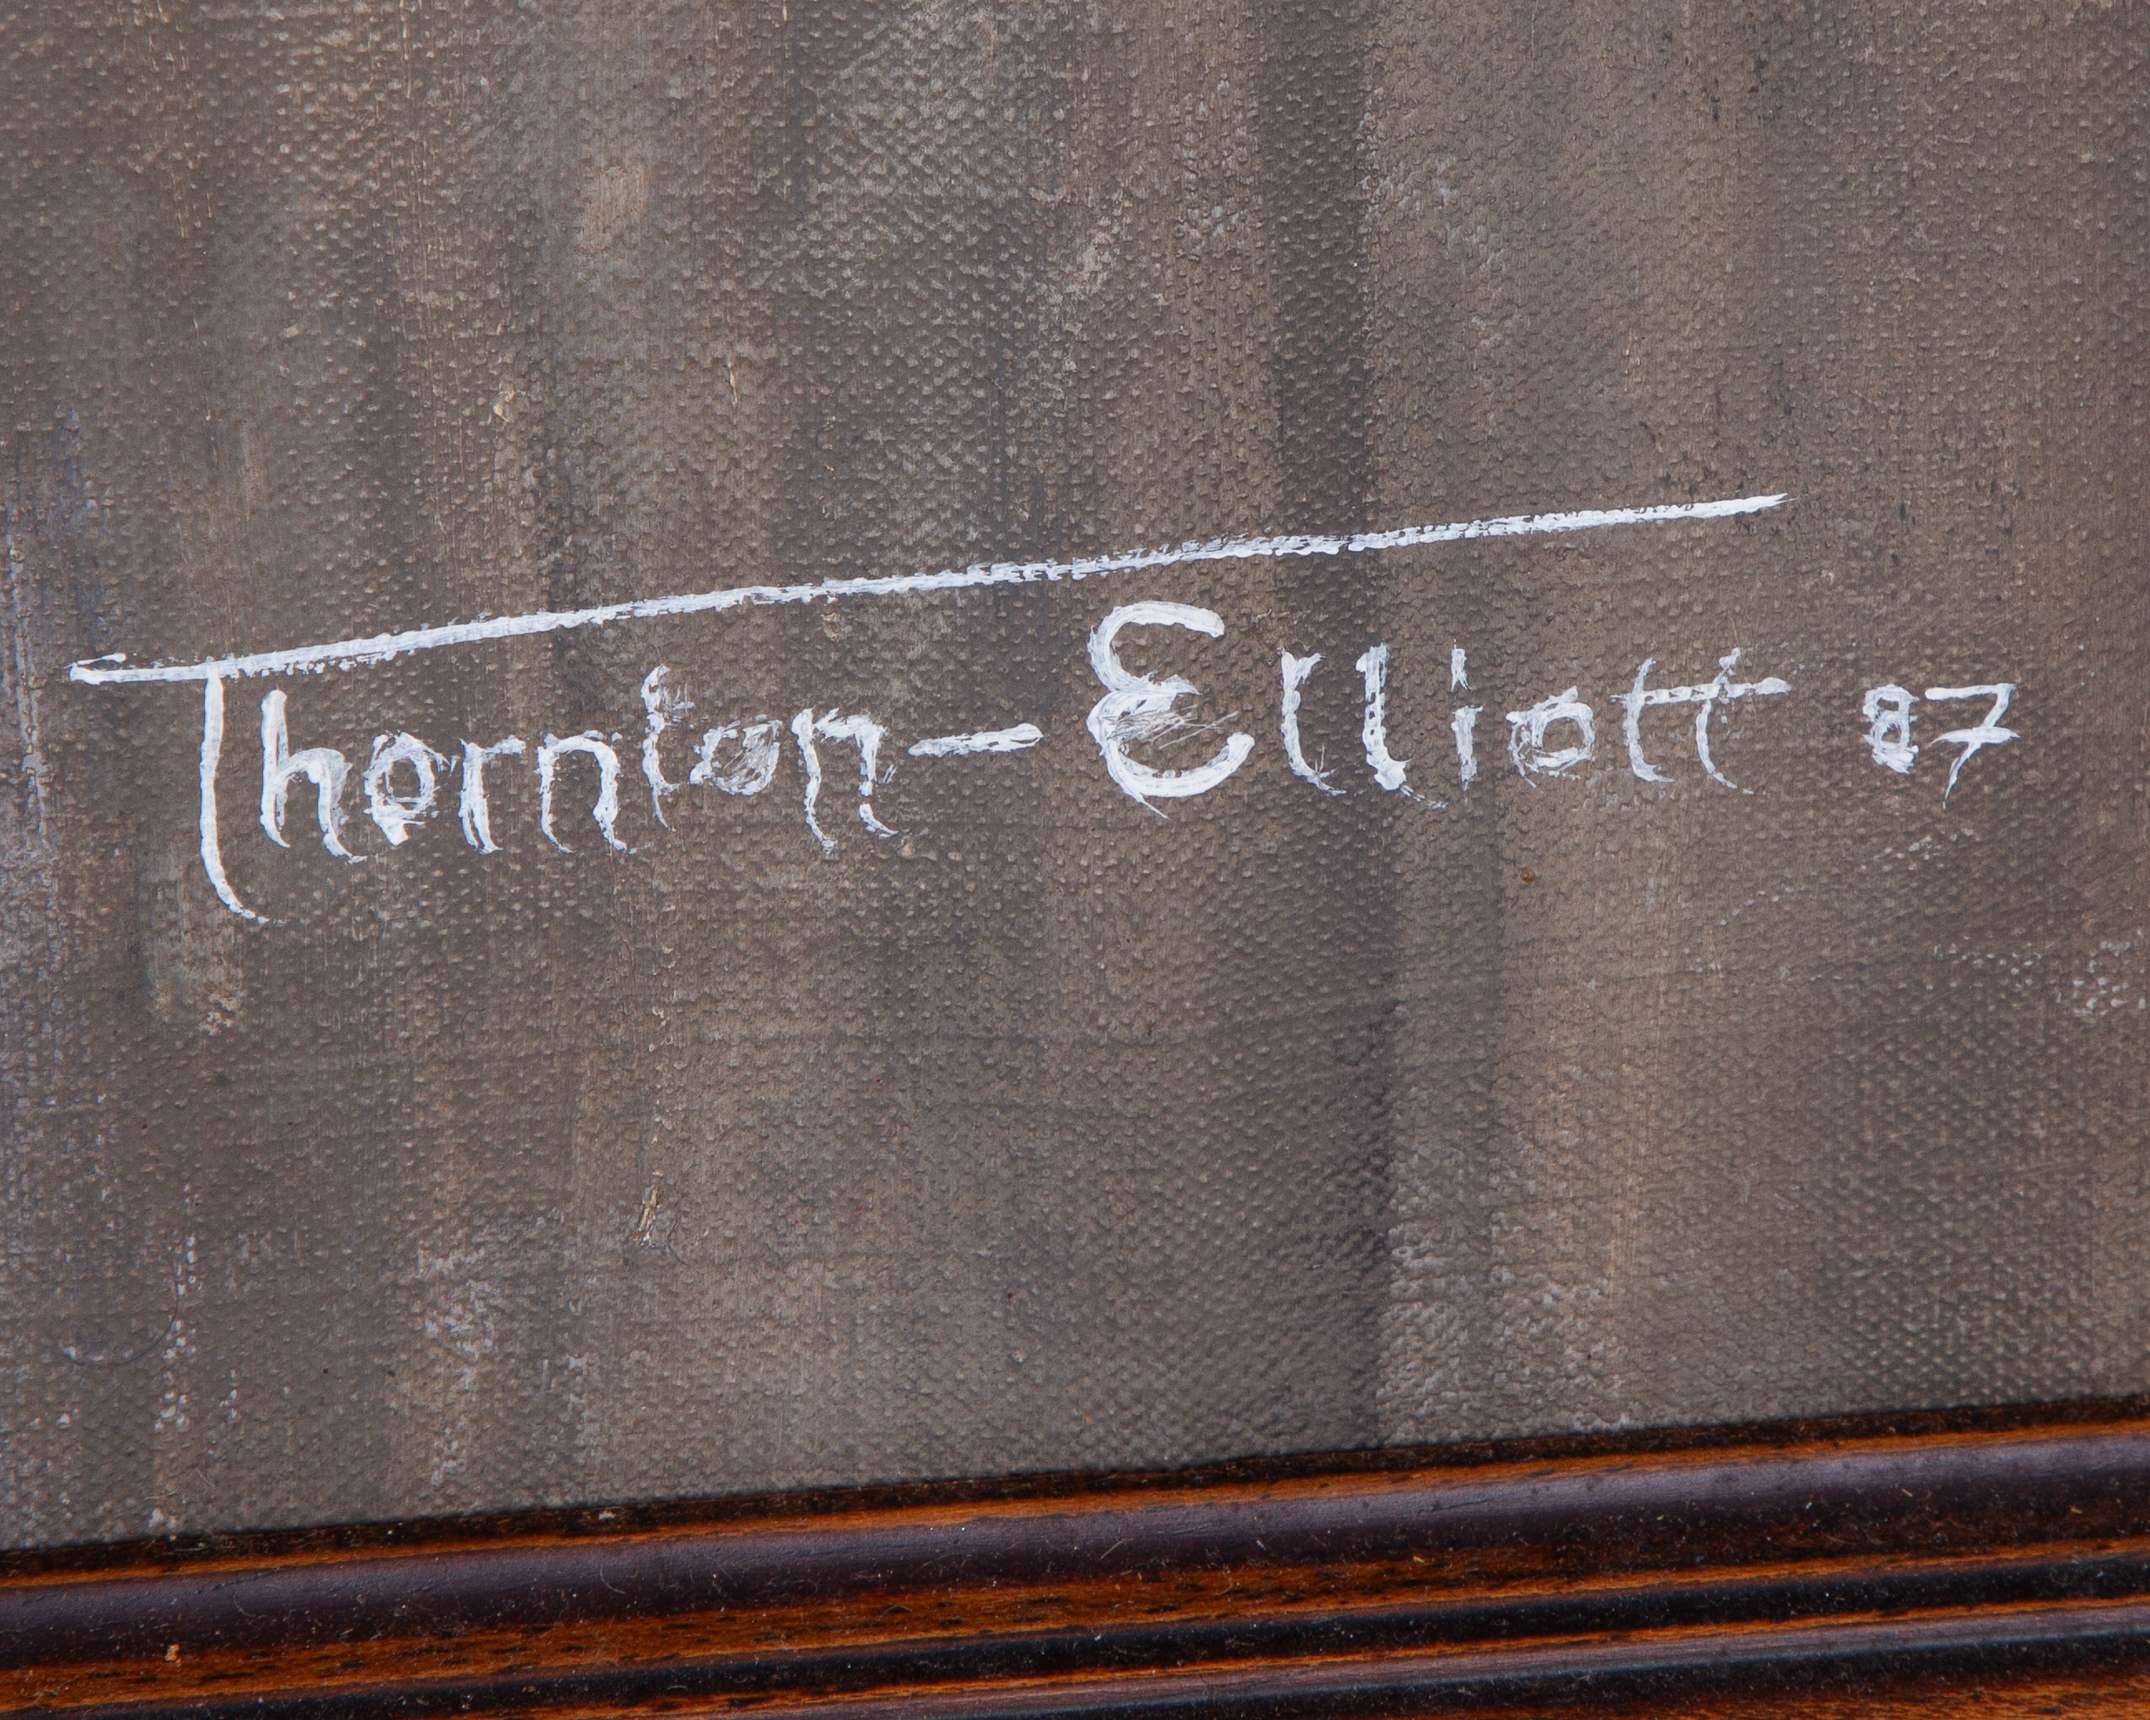 Thornton-Elliott 87